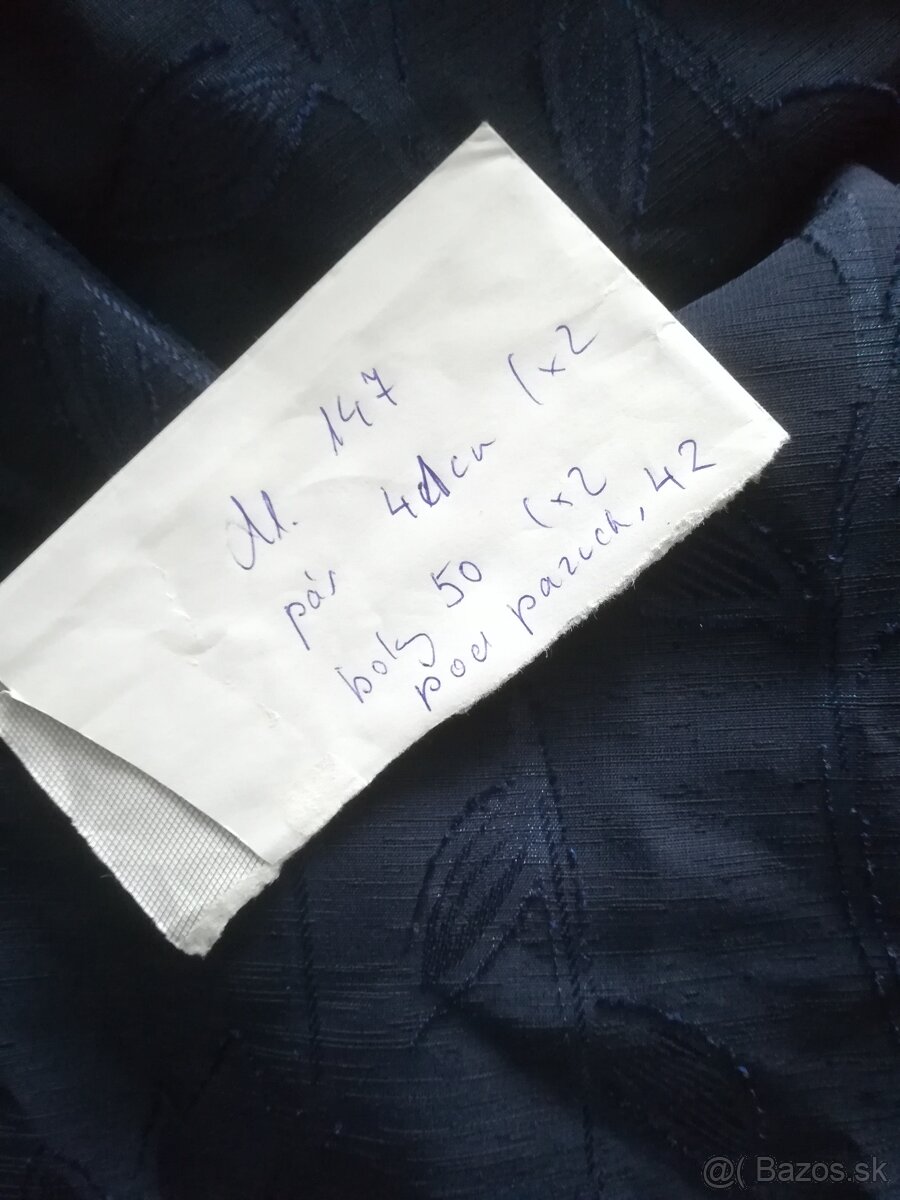 dl. 147
pás 41cm (x2
boky 50 (x2
pod pazuch, 42
@( Bazos.sk